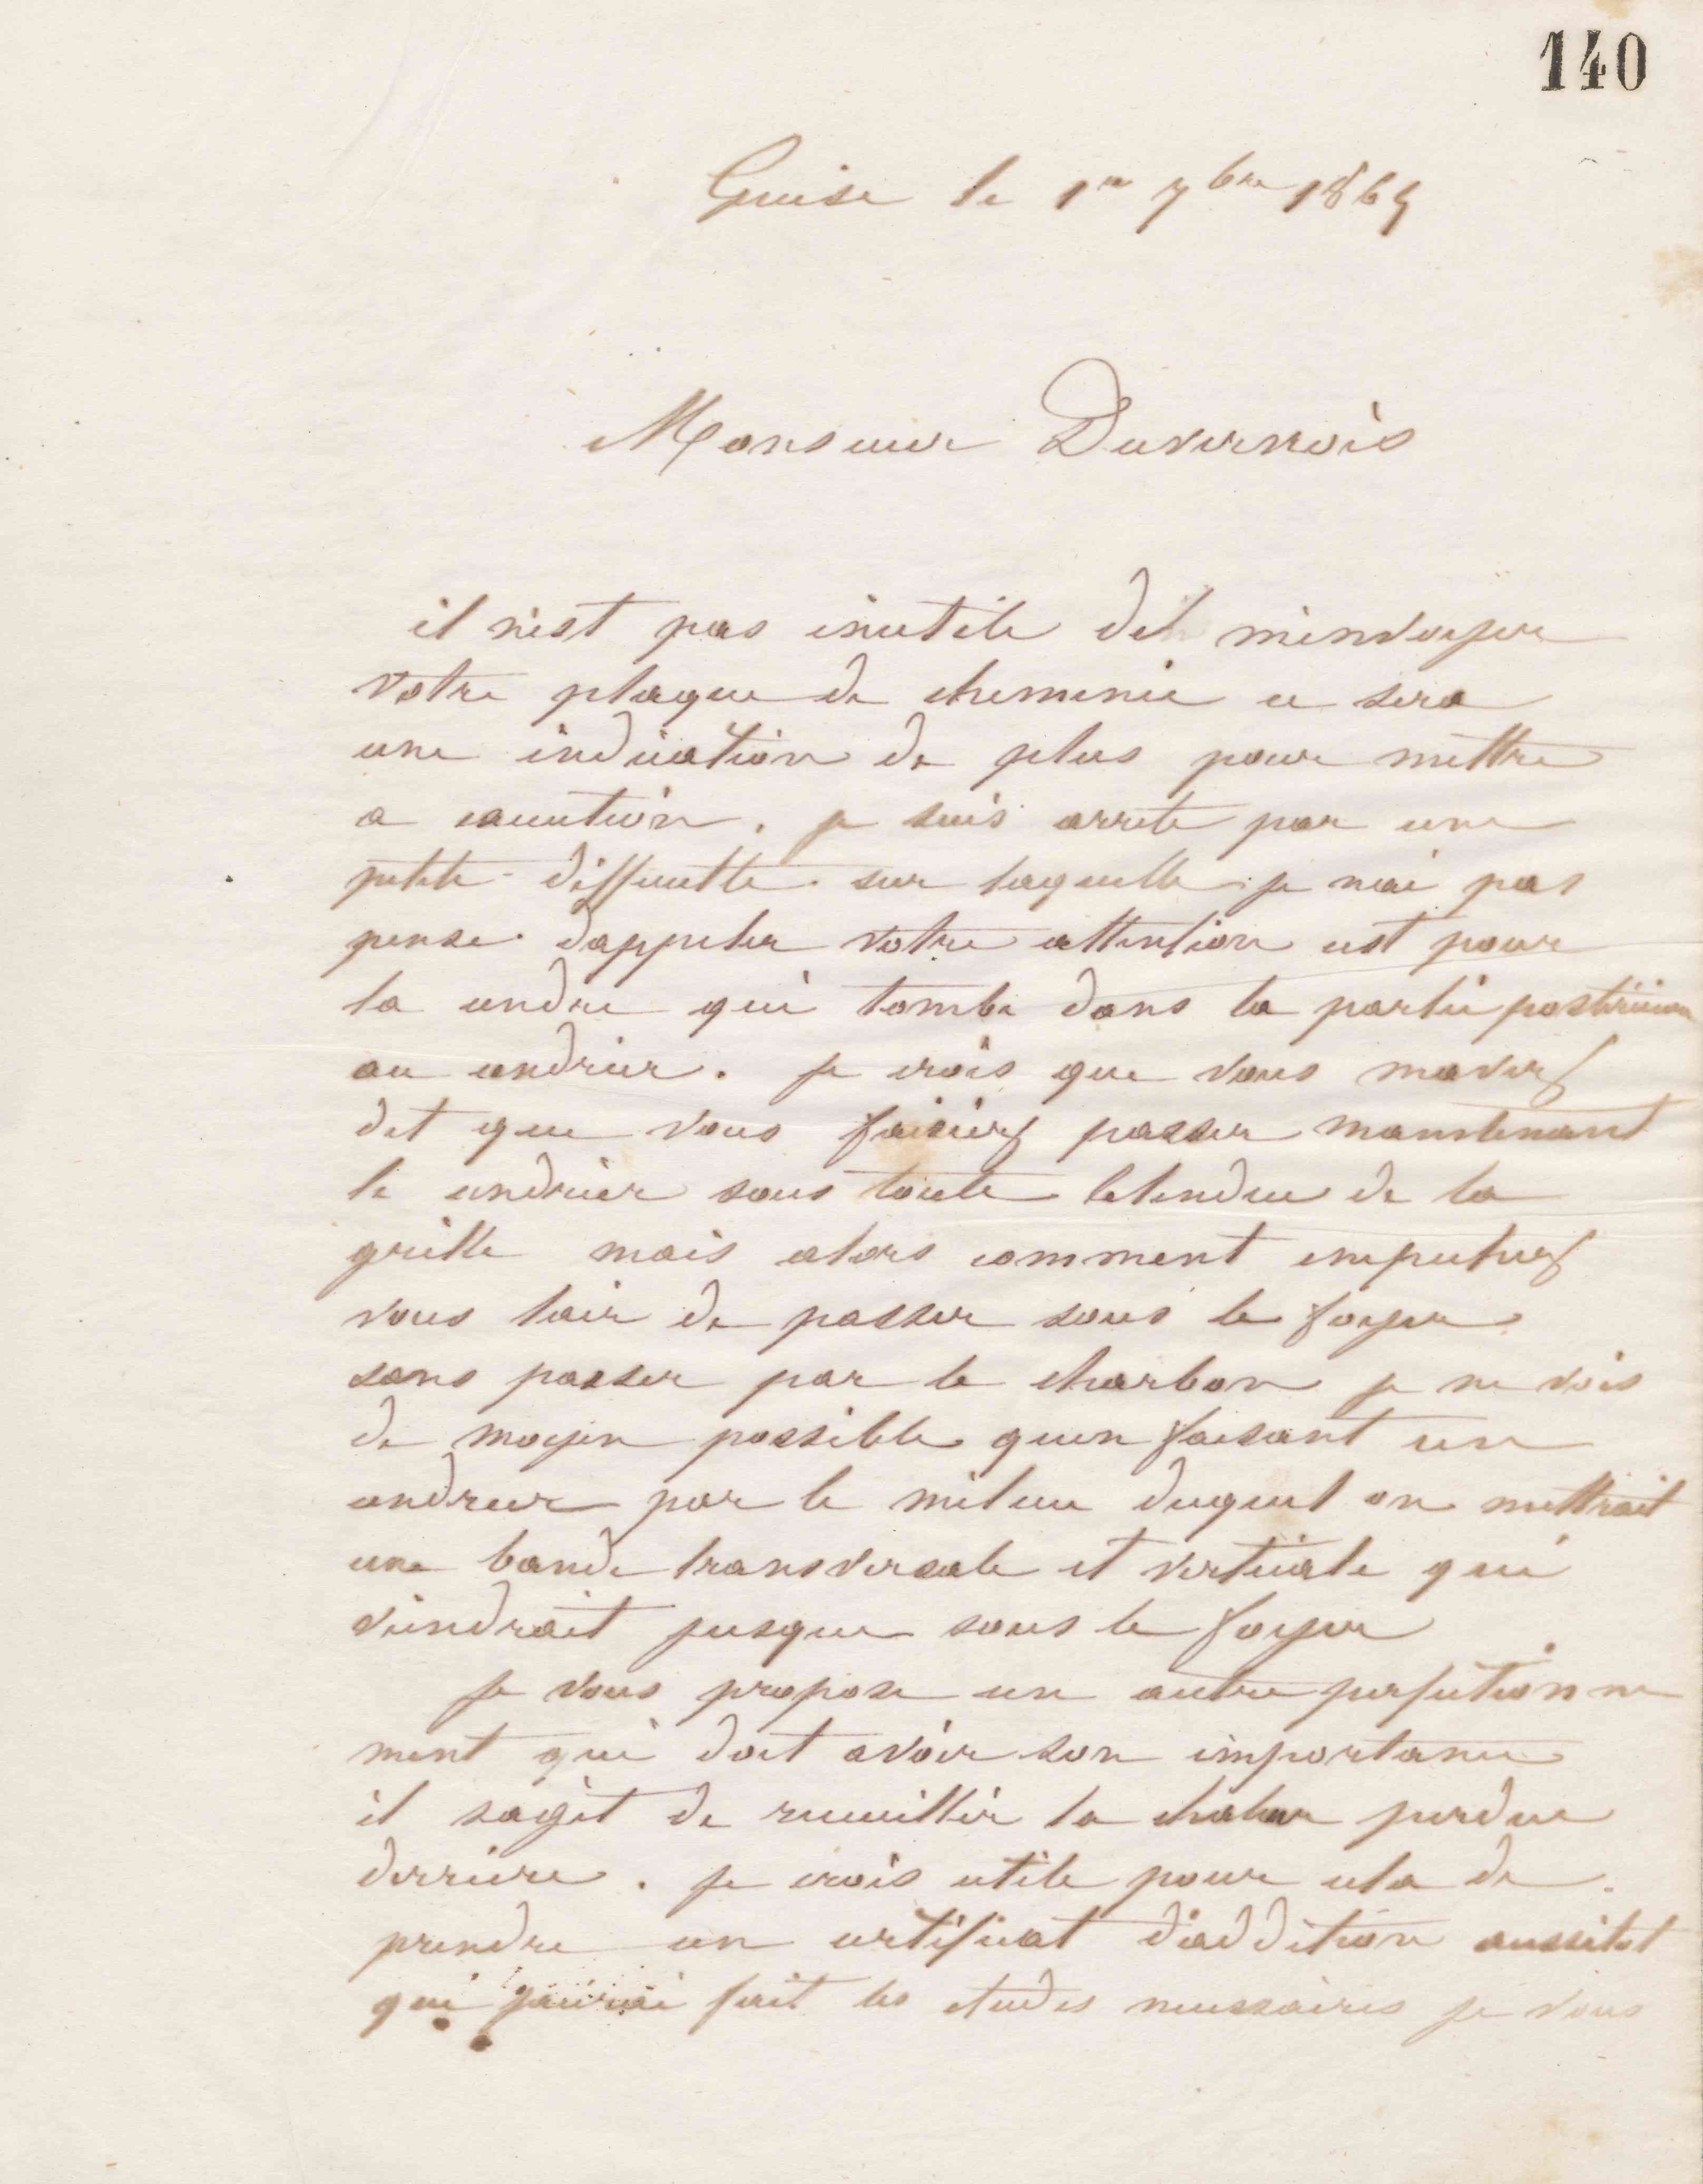 140
Guise le 1er 7bre 1865
Monsieur Duvernois
il n'est pas inutile de m'envoyer
votre plaque de cheminée ce sera
une indication de plus pour mettre
a execution. je suis arrete par une
petite difficulte sur laquelle je n'ai pas
pense d'appeler votre attention cest pour
la cendre qui tombe dans la partie posterieure
au cendrier. je crois que vous mavez
dit que vous faisiez passer maintenant
le cendrier sous toute letendue de la
grille mais alors comment empechez
vous lair de passer sous le foyer
sans passer par le charbon je ne vois
de moyen possible quen faisant un
cendrier par le milieu duquel on mettrait
une bande transversale et verticale qui
viendrait jusque sous le foyer
je vous propose un autre perfectionne
ment qui doit avoir son importance
il sagit de recueillir la chaleur perdue
derriere. je crois utile pour cela de
prendre un certificat d'addition aussitot
que j'aurai fait les etudes necessaires je vous